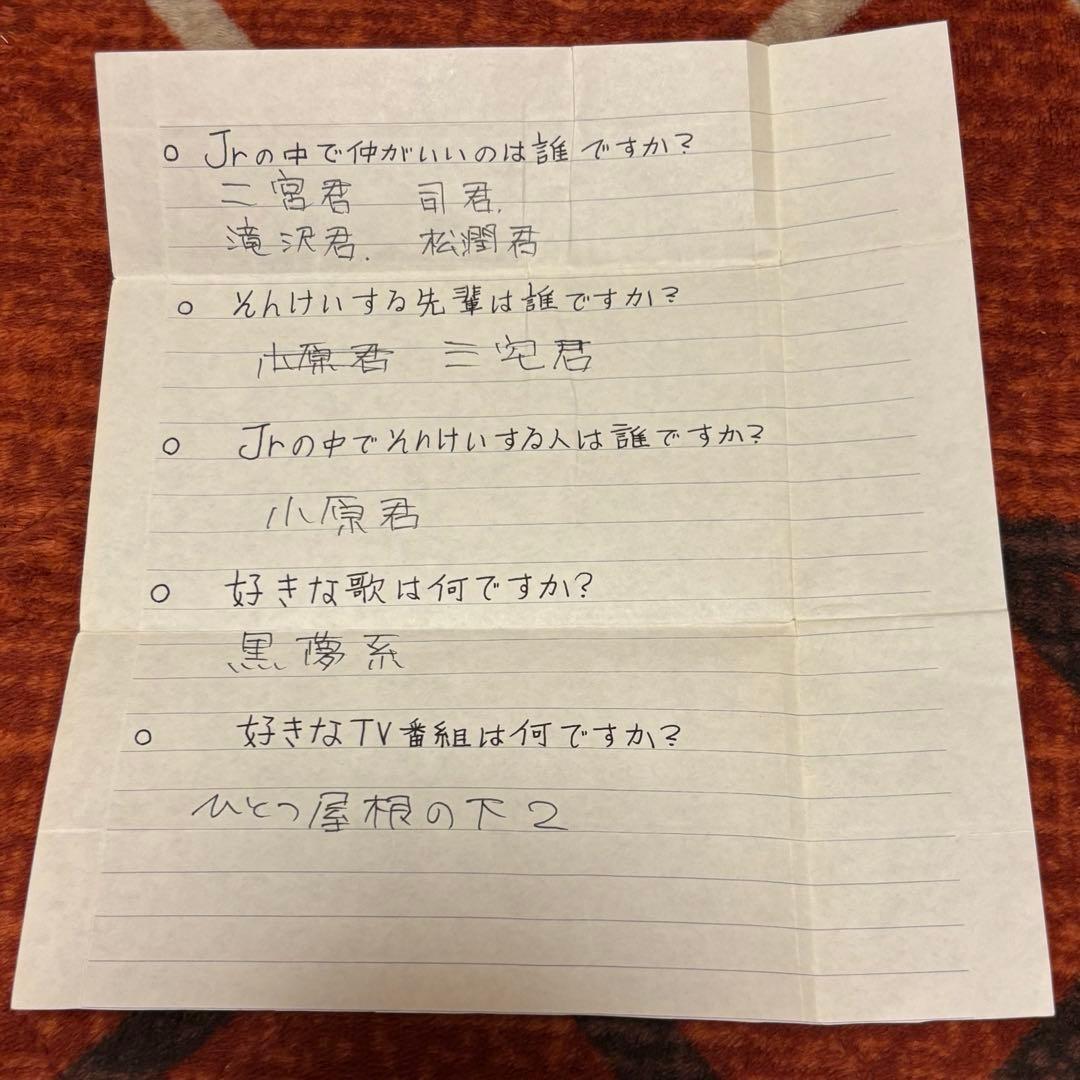 ○ Jrの中で仲がいいのは誰ですか?
二宮君 司君.
滝沢君. 松潤君
○ そんけいする先輩は誰ですか?
小原君 三宅君
○ Jrの中でそんけいする人は誰ですか?
小原君
○ 好きな歌は何ですか?
黒夢系
○ 好きなTV番組は何ですか?
ひとつ屋根の下2